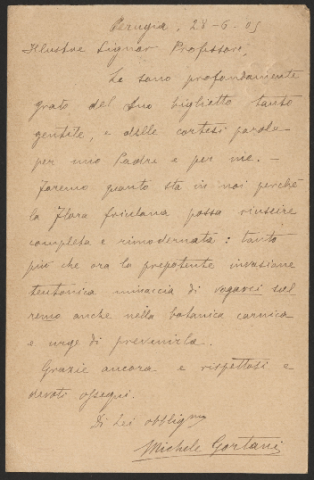 Perugia, 28-6-05
Illustre Signor Professore,
Le sono profondamente
grato del Suo biglietto tanto
gentile, e delle cortesi parole
per mio Padre e per me. —
Faremo quanto sta in noi perché
la Flora friulana possa riuscire
completa e rimodernata: tanto
più che ora la prepotente invasione
teutonica minaccia di vogarci sul
remo anche nella botanica carnica
e urge di prevenirla.
Grazie ancora e rispettosi e
devoti ossequi.
Di Lei obbligmo
Michele Gortani